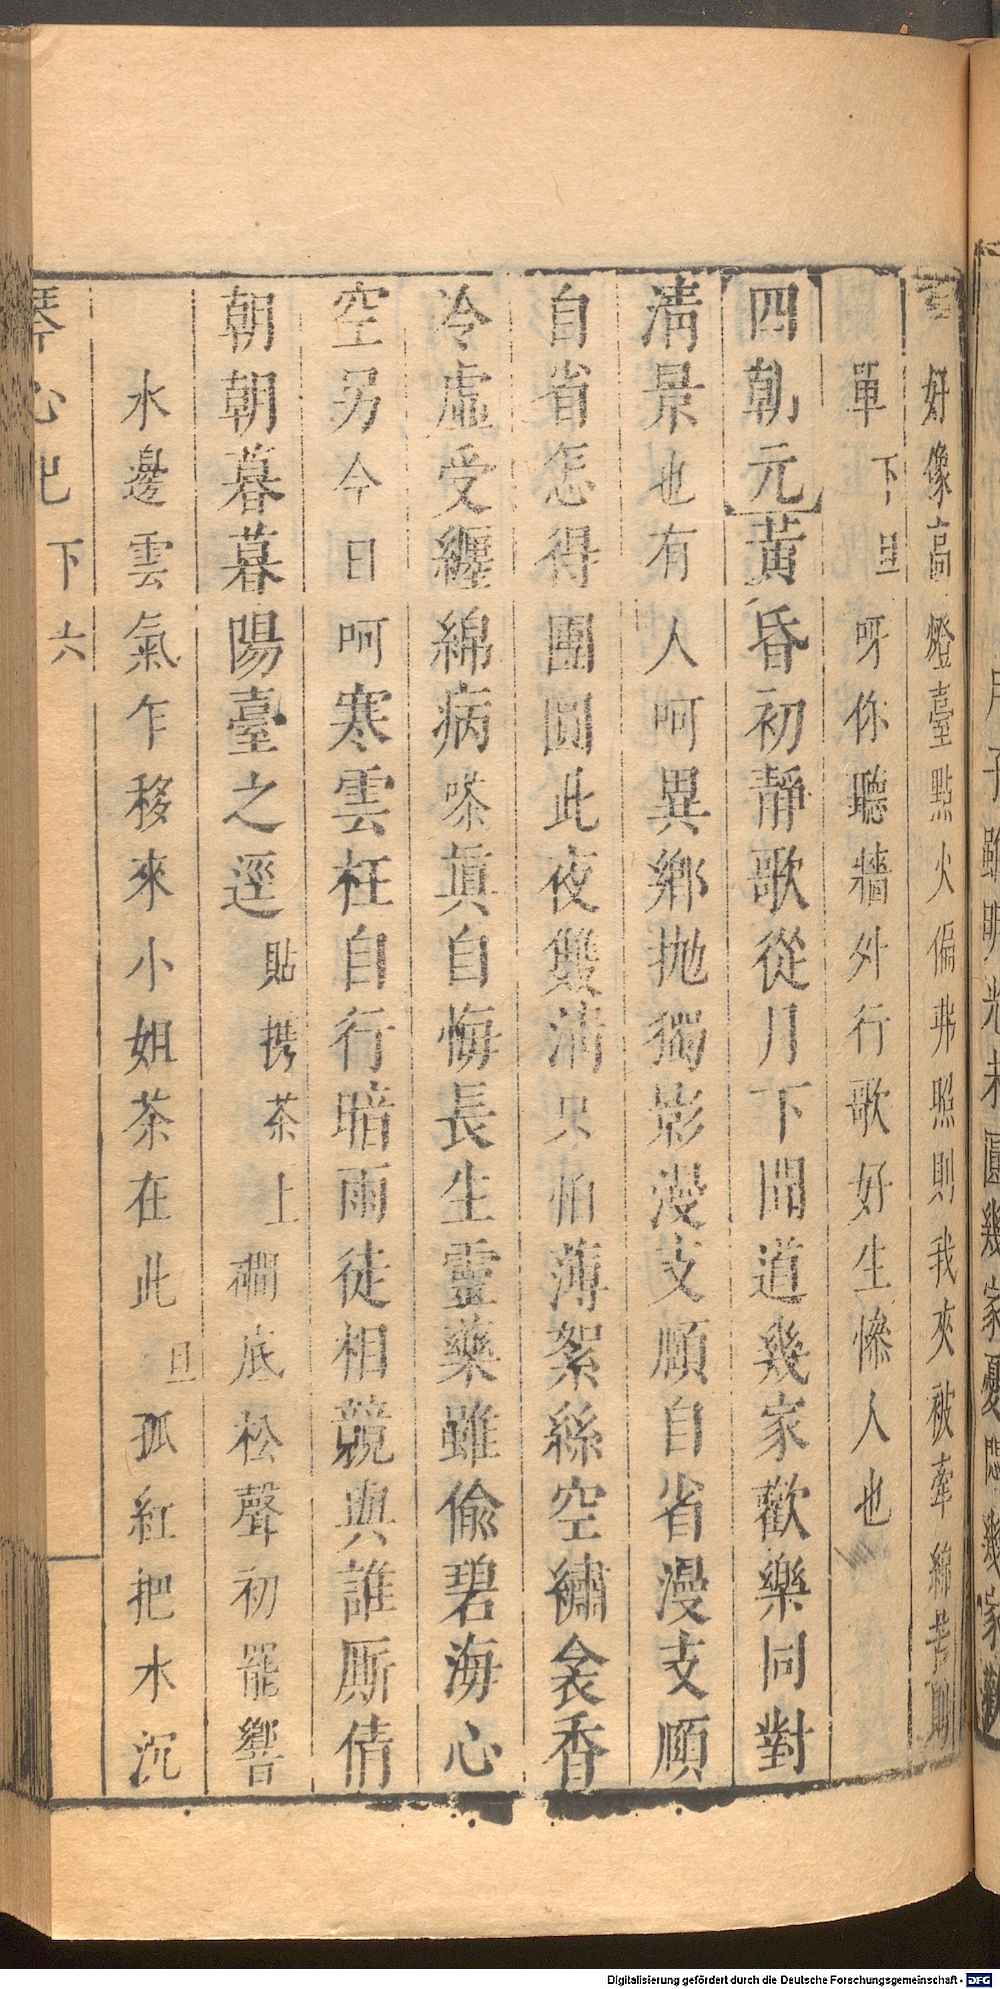 好像高燈臺點火偏弗照則我夾被牽綿苦則
單下旦呀你聽牆外行歌好生慘人也
四朝元黃昏初靜歌從月下聞道幾家歡樂同對
清景也有人呵異鄉拋獨影漫支頤自省漫支頤
自省怎得團圓此夜雙清只怕薄絮絲空繡衾香
冷虛受纏綿病嗏眞自悔長生靈藥雖偷碧海心
空另今日呵寒雲枉自行暗雨徒相競與誰厮倩
朝朝暮暮陽臺之逕貼携茶上磵底松聲初罷響
水邊雲氣乍移來小姐茶在此旦孤紅把水沉
琴心記下六
Digitalisierung gefördert durch die Deutsche Forschungsgemeinschaft - DFG